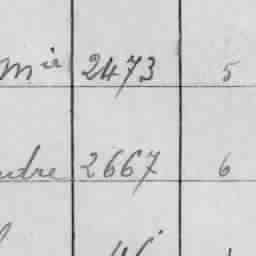 mie 2473 5
udre 2667 6